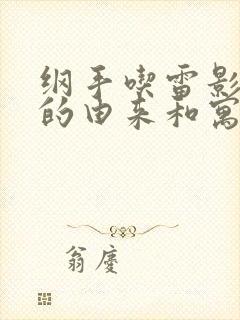 纲手喫雷影
的由来和寓
翁廛